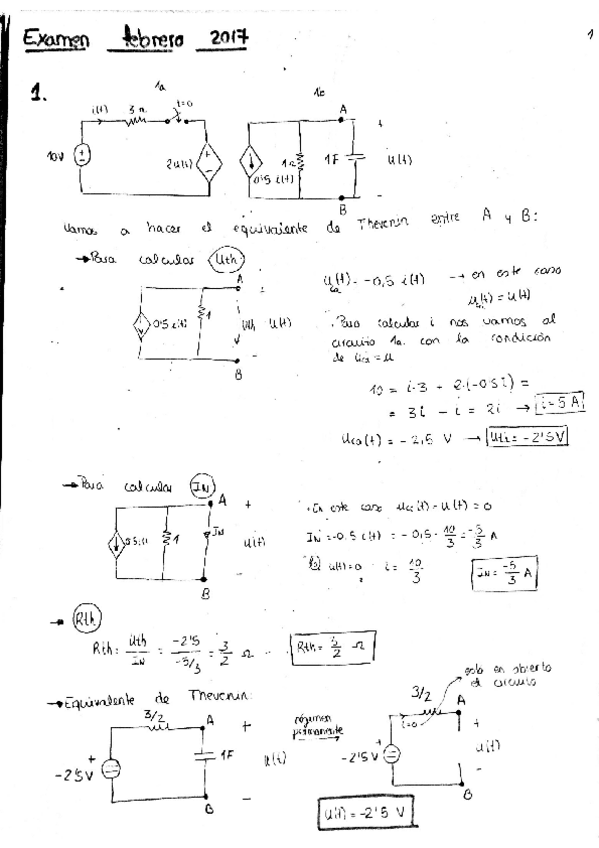 Examen febrero 2017
1
1.
1a
1b
i(t) 3 Ω t=0
10V
2u(t)
0'5 i(t)
1Ω
1F
u(t)
A
B
+
-
Vamos a hacer el equivalente de Thevenin entre A y B:
→ Para calcular Uth
A
0'5 i(t) 1 Uth u(t)
B
u(t) = -0,5 i(t) → en este caso
= u(t)
· Para calcular i nos vamos al
circuito 1a. con la condición
de = u
10 = i·3 + 2·(-0'5i) =
= 3i - i = 2i → i=5 A
(t) = -2,5 V → = -2'5V
→ Para calcular IN
A +
0'5i(t) 1 IN u(t)
B -
· En este caso u(t) = 0
IN = -0.5 i(t) = -0,5 · 10/3 = -5/3 A
u(t)=0 i = 10/3
IN = -5/3 A
→ Rth
Rth: Uth/IN = -2'5/-5/3 = 3/2 Ω
Rth = 3/2 Ω
→ Equivalente de Thevenin:
3/2 A +
-2'5V 1F u(t)
B -
régimen
permanente
esto en abierto
el circuito
3/2 A
i=0 +
-2'5V u(t)
-
B
u(t) = -2'5 V